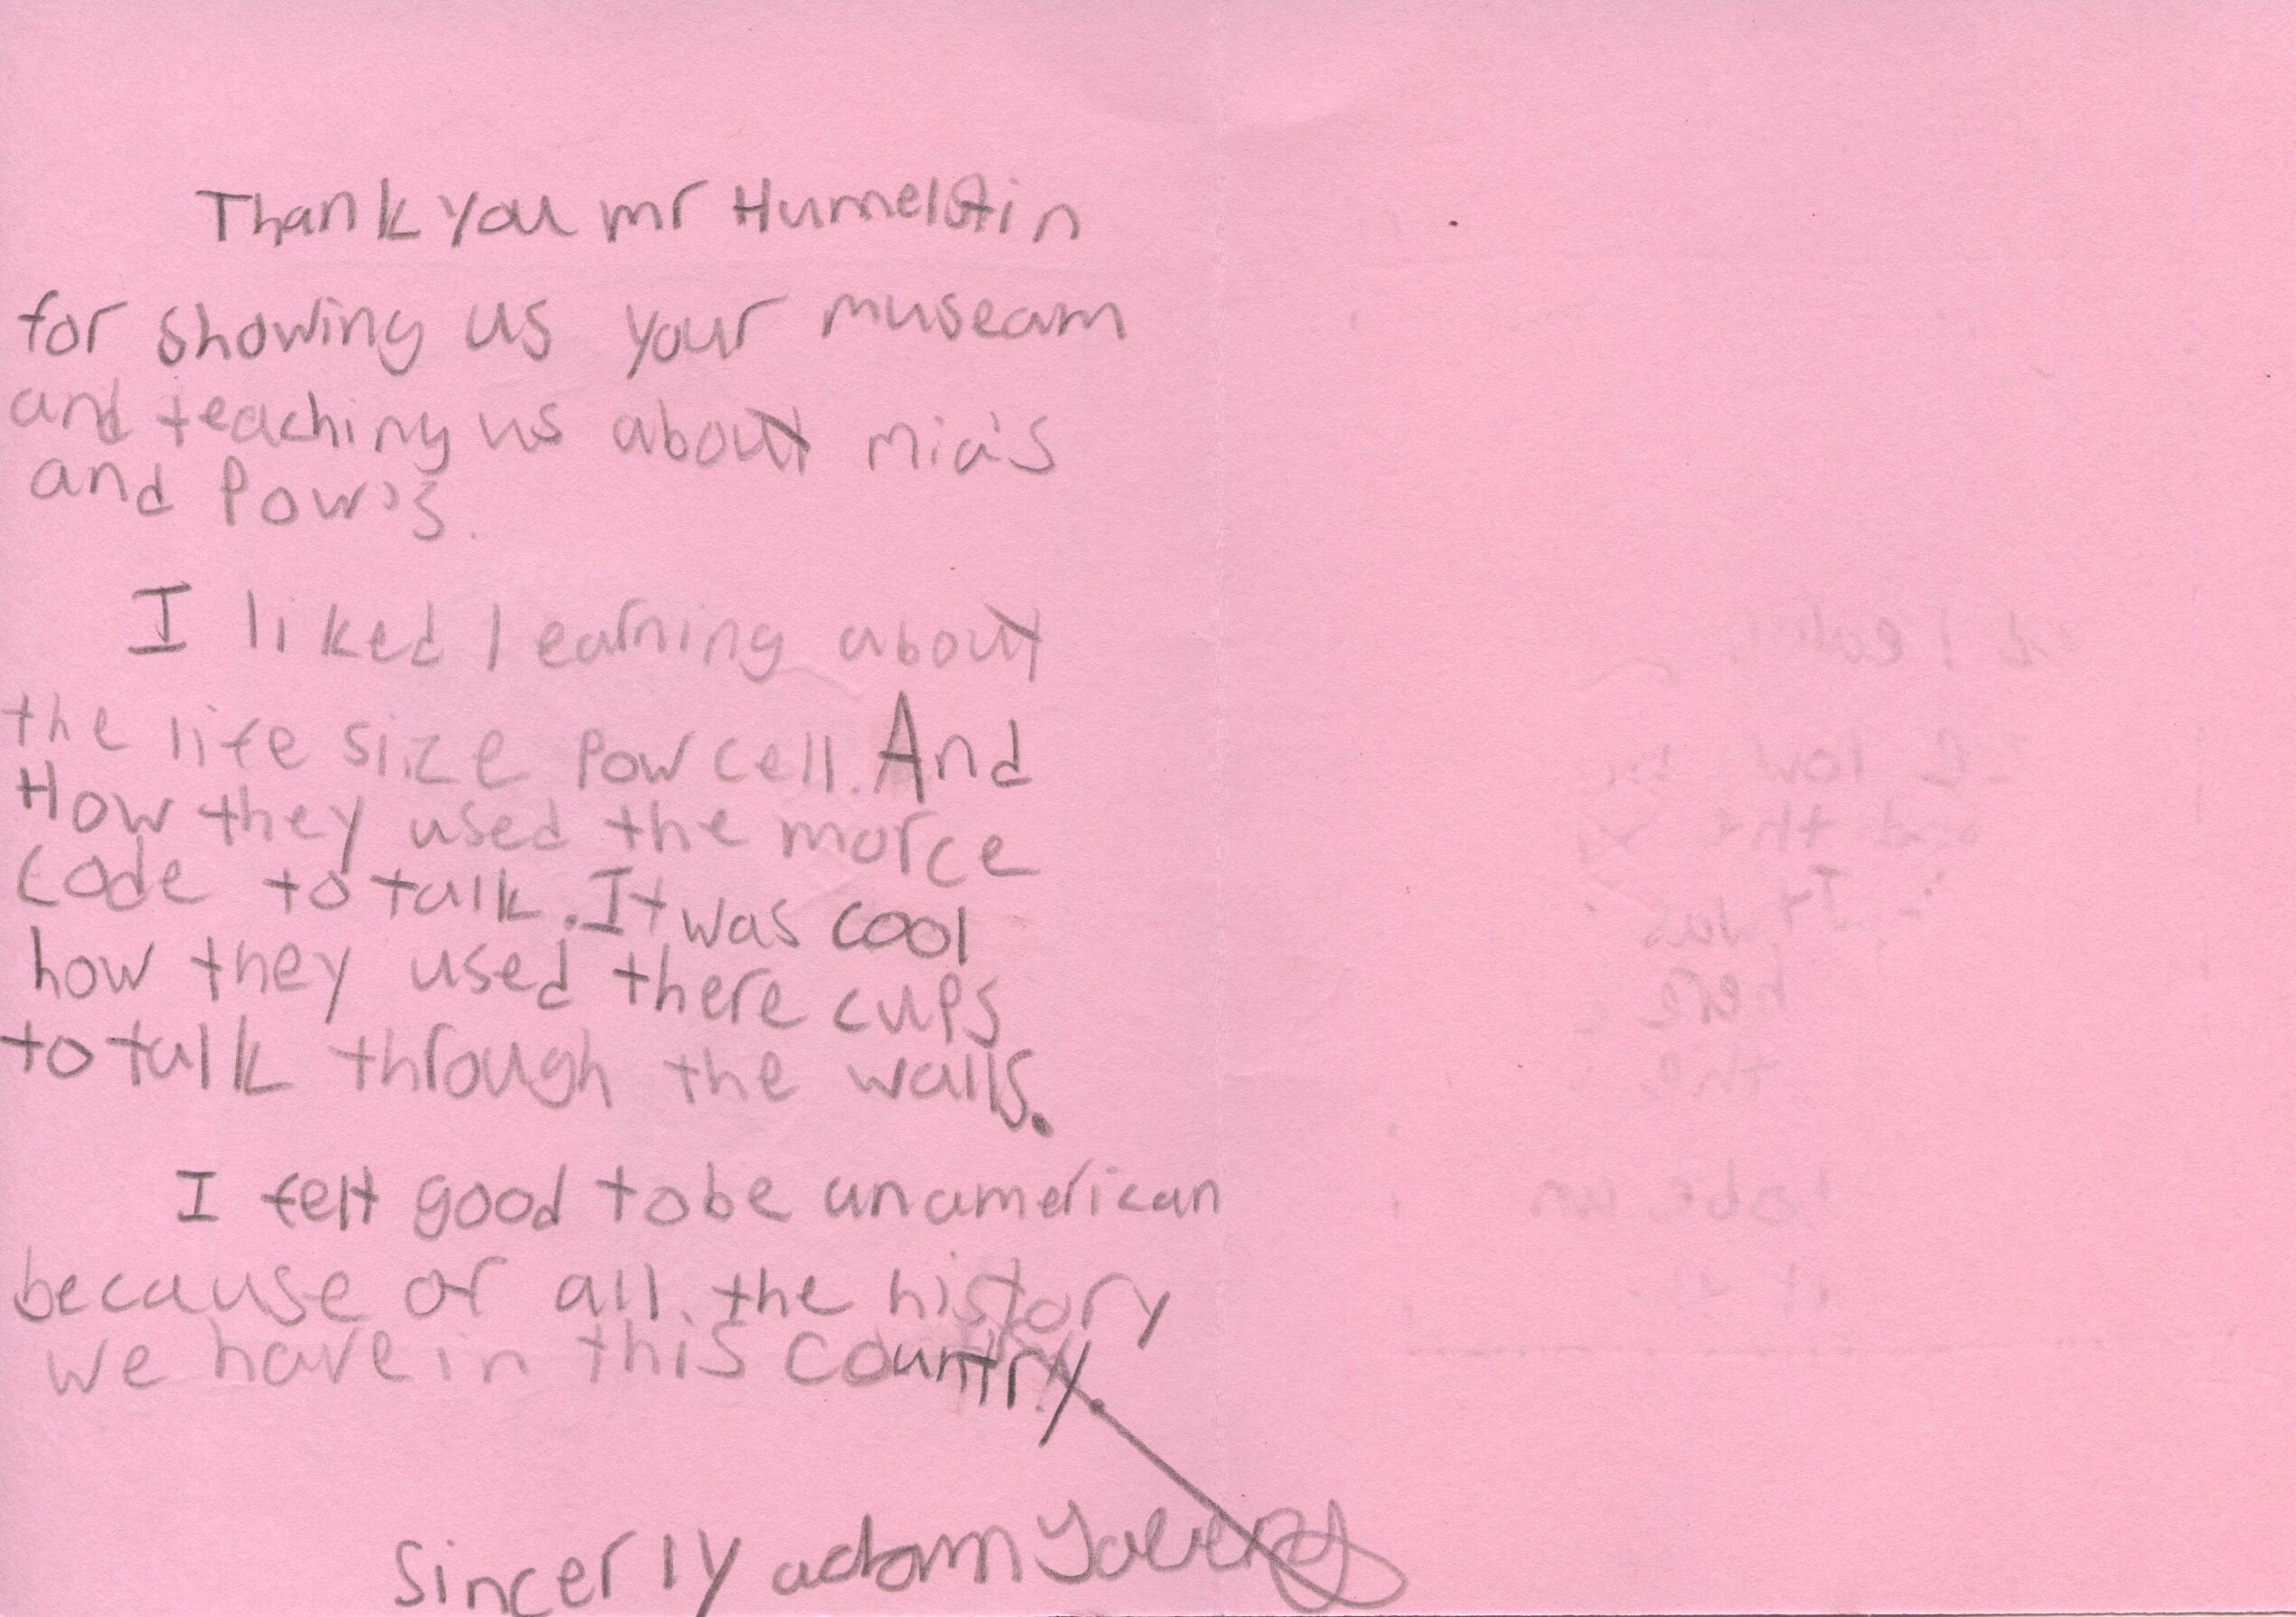 Thank you mr Humelstin
for showing us your museam
and teaching us about mia's
and Pow's.
I liked learning about
the life size Pow cell. And
How they used the morce
code to talk. It was cool
how they used there cups
to talk through the walls.
I felt good to be an american
because of all the history
we have in this country.
Sincerly adam